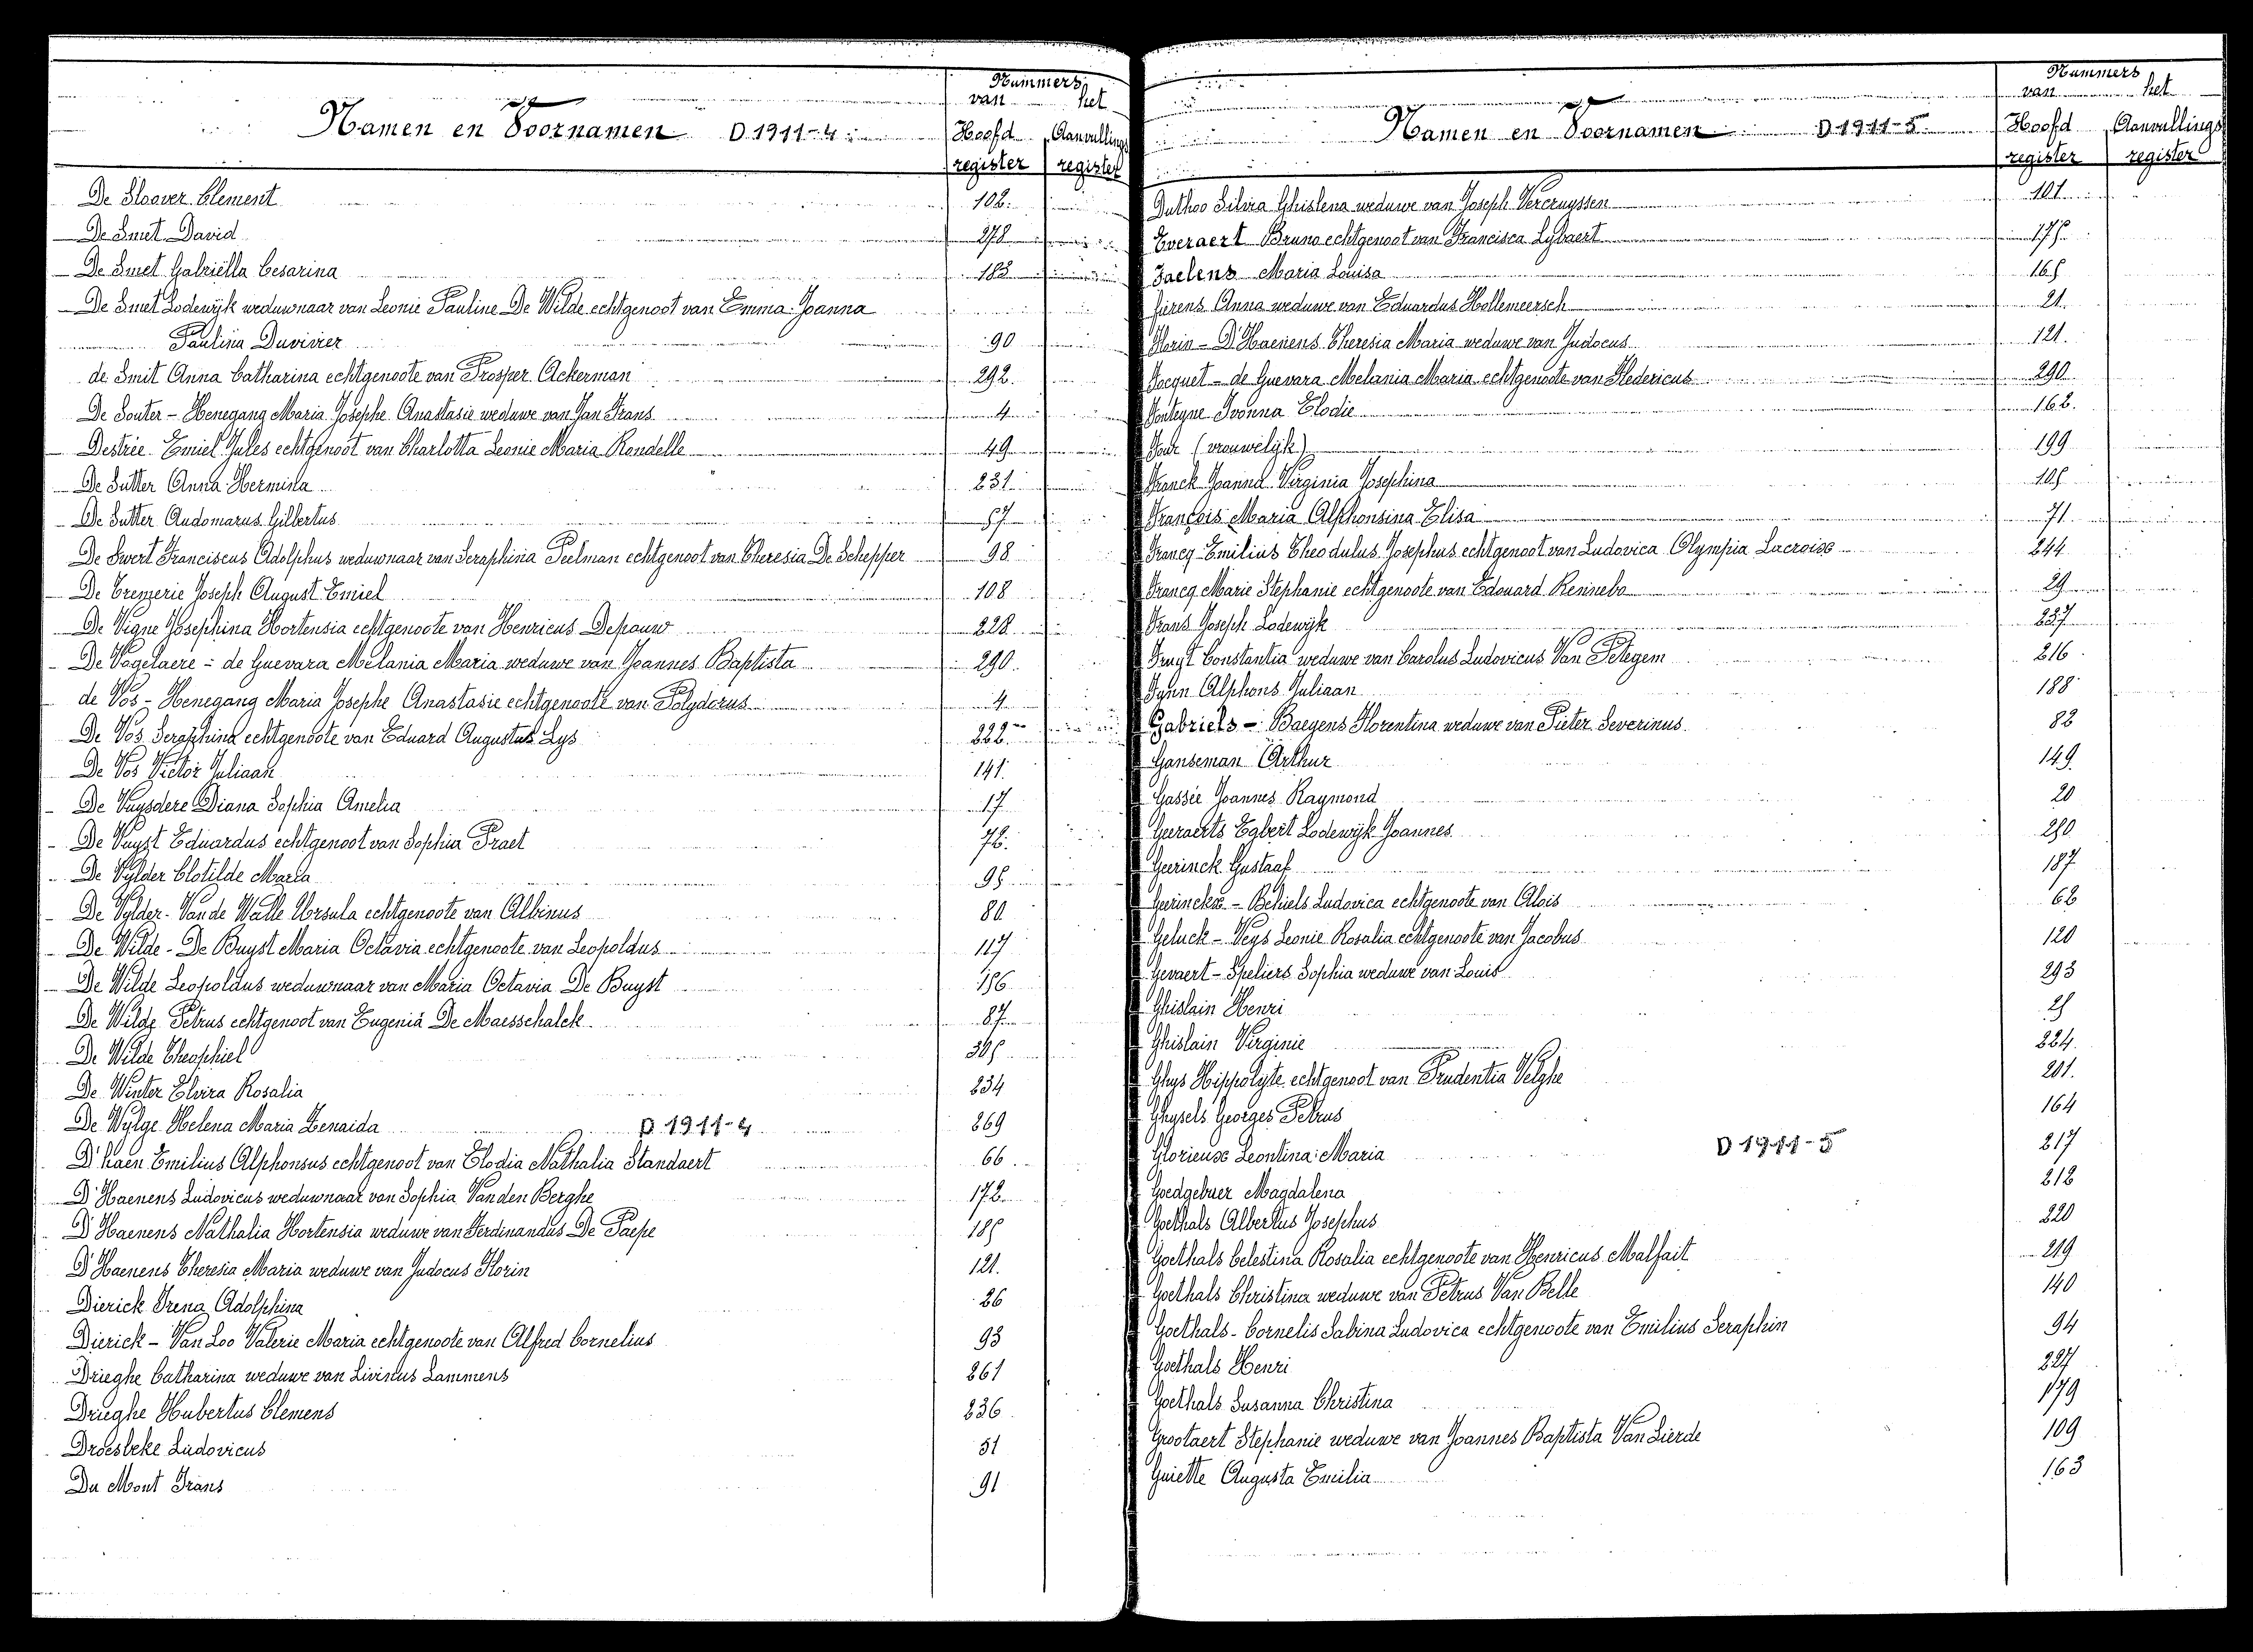 Nummers
van het
Namen en Voornamen D 1911-4 Hoofd Aanvullings
register register
De Sloover Clement 102.
De Smet David 278
De Smet Gabriëlla Cesarina 183
De Smet Lodewijk weduwnaar van Leonie Pauline De Wilde echtgenoot van Emma Joanna
Paulina Duvivier 90
de Smit Anna Catharina echtgenoote van Prosper Ackerman 292.
De Souter - Henegang Maria Josephe Anastasie weduwe van Jan Frans 4
Destrée Emiel Jules echtgenoot van Charlotta Leonie Maria Rondelle 49
De Sutter Anna Hermina 231
De Sutter Audomarus Gilbertus 57
De Swert Franciscus Adolphus weduwnaar van Seraphina Peelman echtgenoot van Theresia De Schepper 98
De Tremerie Joseph August Emiel 108
De Vigne Josephina Hortensia echtgenoote van Henricus Depauw 228
De Vogelaere - de Guevara Melania Maria weduwe van Joannes Baptista 290
de Vos - Henegang Maria Josephe Anastasie echtgenoote van Polydorus 4
De Vos Seraphina echtgenoote van Eduard Augustus Lys 222
De Vos Victor Juliaan 141.
De Vuysdere Diana Sophia Amelia 17
De Vuyst Eduardus echtgenoot van Sophia Praet 72.
De Vylder Clotilde Maria 95
De Vylder - Van de Walle Ursula echtgenoote van Albinus 80
De Wilde - De Buyst Maria Octavia echtgenoote van Leopoldus 117
De Wilde Leopoldus weduwnaar van Maria Octavia De Buyst 156
De Wilde Petrus echtgenoot van Eugenia De Maesschalck 87
De Wilde Theophiel 305
De Winter Elvira Rosalia 234
De Wylge Helena Maria Zenaida D 1911-4 269
D'haen Emilius Alphonsus echtgenoot van Elodia Nathalia Standaert 66
D'Haenens Ludovicus weduwnaar van Sophia Vanden Berghe 172
D'Haenens Nathalia Hortensia weduwe van Ferdinandus De Paepe 185
D'Haenens Theresia Maria weduwe van Judocus Florin 121.
Dierick Irena Adolphina 26
Dierick - Van Loo Valerie Maria echtgenoote van Alfred Cornelius 93
Drieghe Catharina weduwe van Livinus Lammens 261
Drieghe Hubertus Clemens 236
Droesbeke Ludovicus 51
Du Mont Frans 91
Nummers
van het
Namen en Voornamen D 1911-5 Hoofd Aanvullings
register register
Duthoo Silvia Ghislena weduwe van Joseph Vercruyssen 101
Everaert Bruno echtgenoot van Francisca Lybaert 175
Faelens Maria Louisa 165
fierens Anna weduwe van Eduardus Hollemeersch 21.
Florin - D'Haenens Theresia Maria weduwe van Judocus 121.
Focquet - de Guevara Melania Maria echtgenoote van Fledericus 290
Fonteyne Ivonna Elodie 162.
(vrouwelijk) 199
Franck Joanna Virginia Josephina 105
François Maria Alphonsina Elisa 71
Francq Emilius Theodulus Josephus echtgenoot van Ludovica Olympia Lacroise 244
Francq Marie Stephanie echtgenoote van Edouard Rennebo 29
Frans Joseph Lodewijk 227
Fruyt Constantia weduwe van Carolus Ludovicus Van Petegem 216
Fynn Alphons Juliaan 188
Gabriels - Baeyens Florentina weduwe van Pieter Severinus 82
Ganseman Arthur 149
Gassée Joannes Raymond 20
Geeraerts Egbert Lodewijk Joannes 250
Geerinck Gustaaf 187
Geerinckx - Behiels Ludovica echtgenoote van Aloïs 62
Geluck - Veys Leonie Rosalia echtgenoote van Jacobus 120
Gevaert - Speliers Sophia weduwe van Louis 293
Ghislain Henri 25
Ghislain Virginie 224
Ghys Hippolyte echtgenoot van Prudentia Velghe 201.
Ghysels Georges Petrus 164
Glorieuse Leontina Maria D 1911-5 217
Goedgebuer Magdalena 212
Goethals Albertus Josephus 220
Goethals Celestina Rosalia echtgenoote van Henricus Malfait 219
Goethals Christina weduwe van Petrus Van Belle 140
Goethals - Cornelis Sabina Ludovica echtgenoote van Emilius Seraphin 94
Goethals Henri 227
Goethals Susanna Christina 179
Grootaert Stephanie weduwe van Joannes Baptista Van Lierde 109
Guiette Augusta Emilia 163